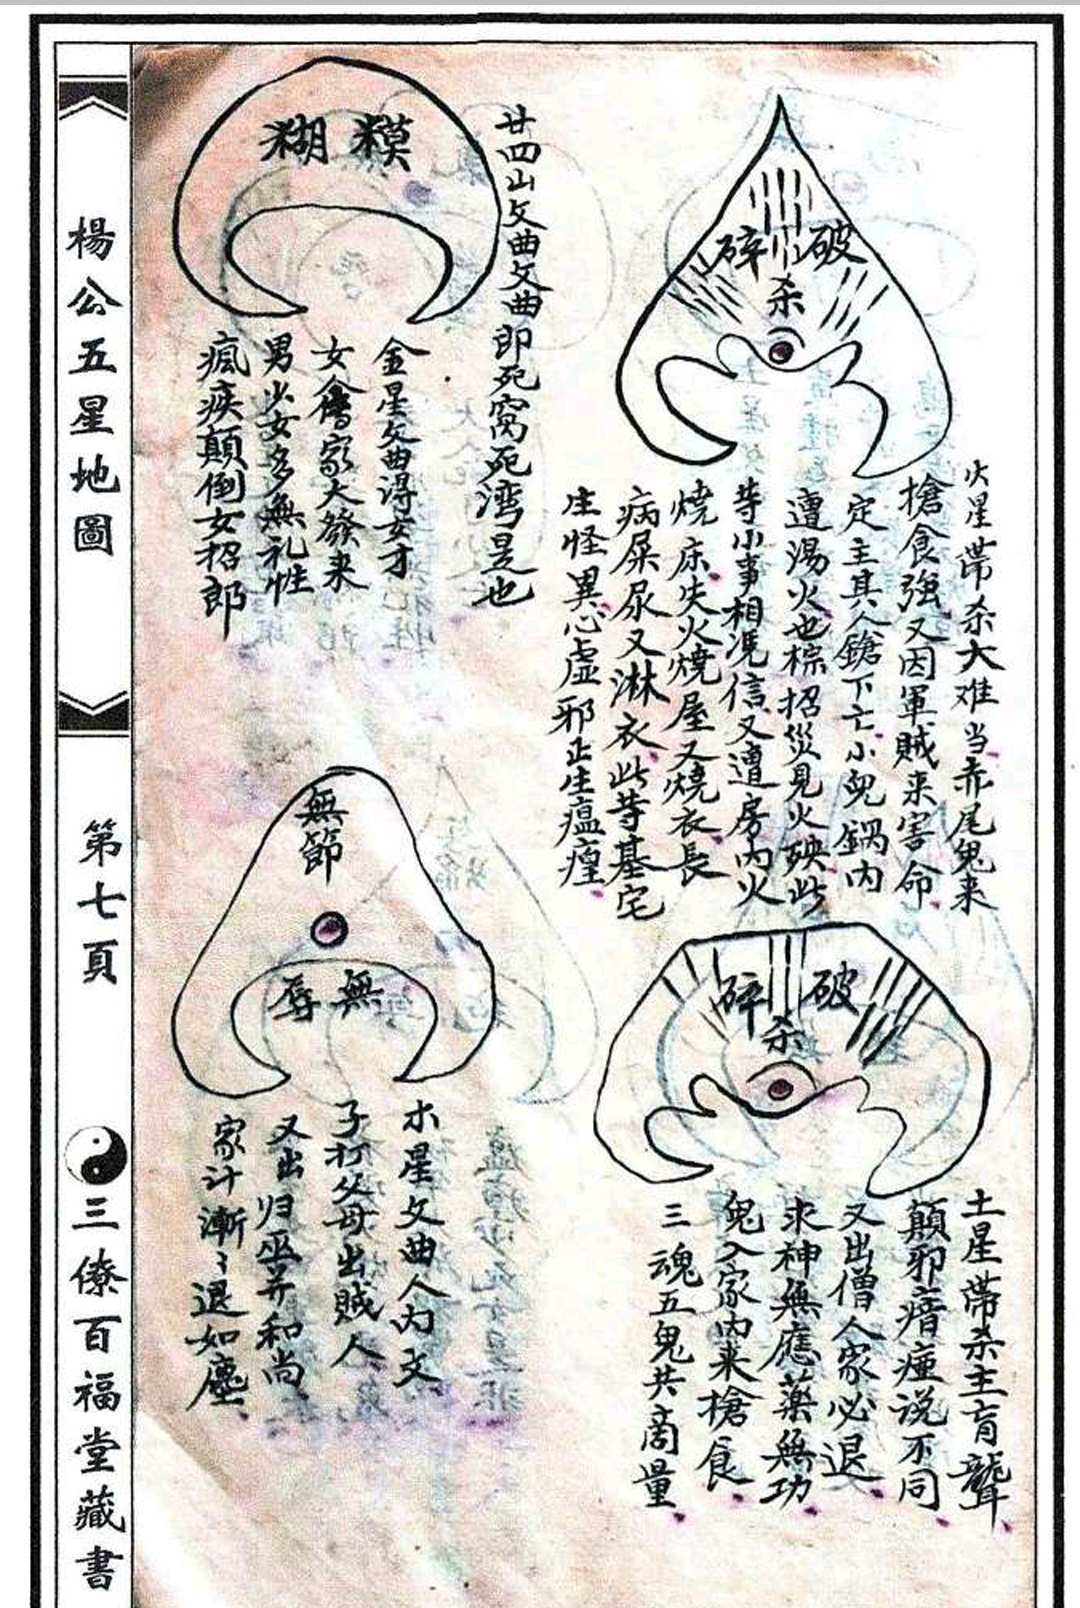 破碎
杀
火星帶杀大难当赤尾鬼来
槍食強又因軍賊来害命
定主其人鎗下亡小兒鍋内
遭湯火也棕招災見火殃此
等小事相凴信又遭房内火
燒床失火燒屋又燒衣長
病屎尿又淋衣此等基宅
生怪異心虚邪正生瘟瘴
破碎
杀
土星帶杀主肓聾
顛邪瘖瘂说不同
又出僧人家必退
求神無應藥無功
鬼入家内来槍食
三魂五鬼共商量
廿四山文曲文曲即死窝死湾是也
糢糊
金星文曲得女才
女會家大發来
男少女多無礼性
瘋疾顛倒女招郎
無節
無辱
木星文曲人内文
子打父母出賊人
又出归巫并和尚
家计漸〻退如塵
楊公五星地圖
第七頁
三僚百福堂藏書